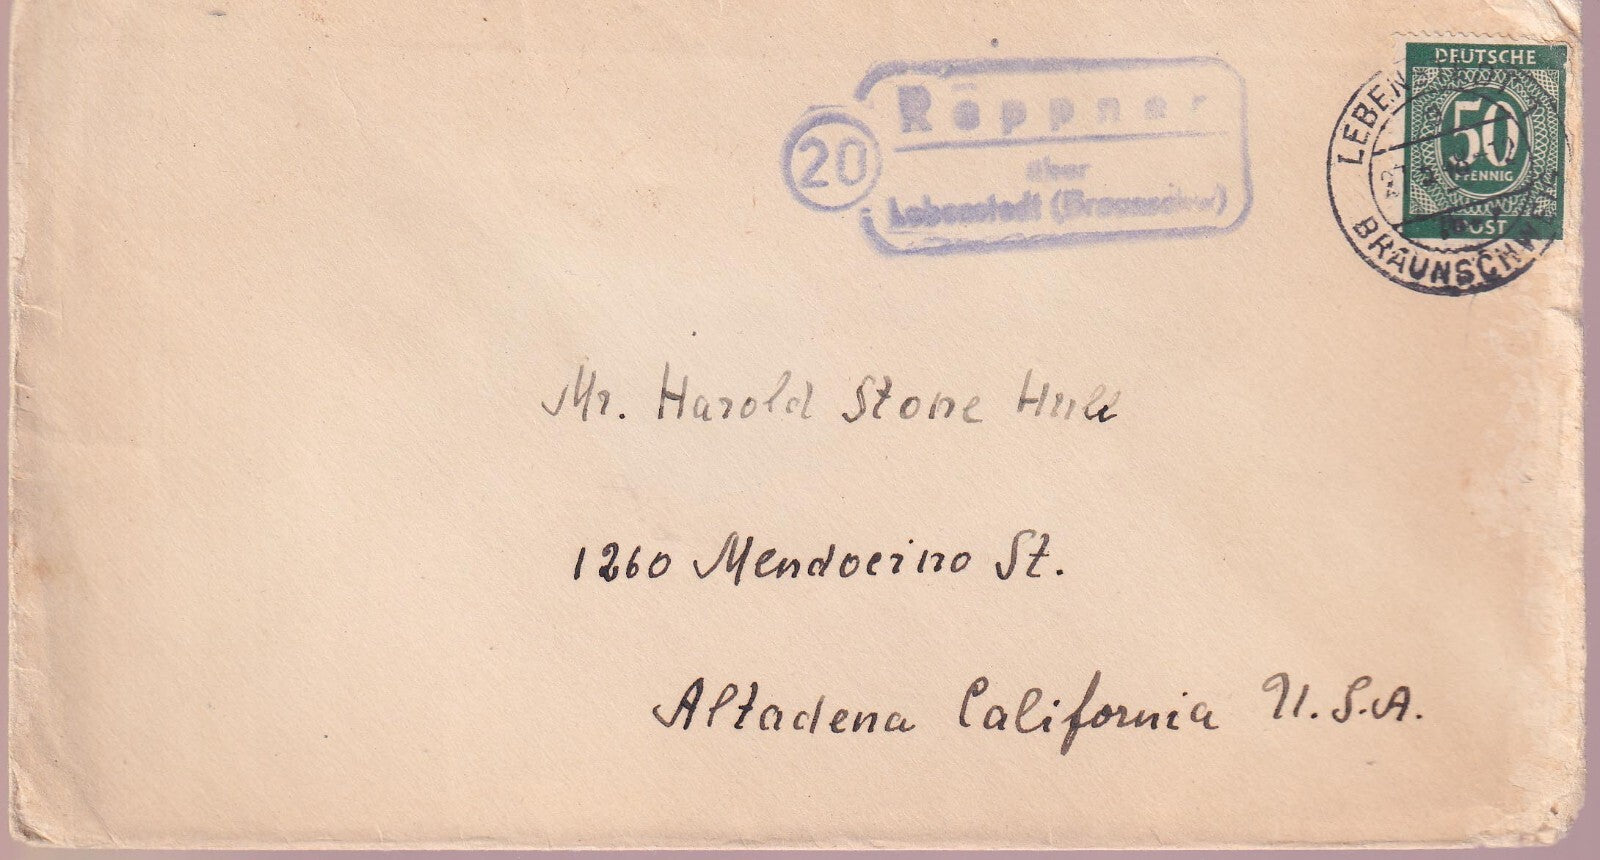 20
Röppner
über
Lebenstedt (Braunschw)
DEUTSCHE
50
PFENNIG
POST
BRAUNSCHW
Mr. Harold Stone Hull
1260 Mendocino St.
Altadena California U.S.A.